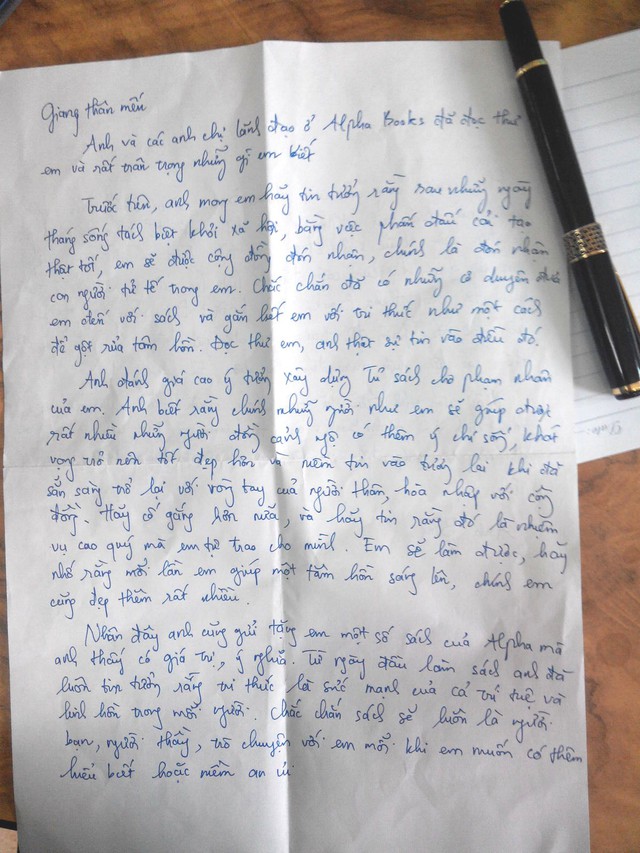 Giang thân mến
Anh và các anh chị lãnh đạo ở Alpha Books đã đọc thư
em và rất trân trọng những gì em biết
Trước tiên, anh mong em hãy tin tưởng rằng sau những ngày
tháng sống tách biệt khỏi xã hội, bằng việc phấn đấu cải tạo
thật tốt, em sẽ được cộng đồng đón nhận, chính là đón nhận
con người tử tế trong em. Chắc chắn đã có những cơ duyên đưa
em đến với sách và gắn kết em với tri thức như một cách
để gột rửa tâm hồn. Đọc thư em, anh thật sự tin vào điều đó.
Anh đánh giá cao ý tưởng xây dựng Tủ sách cho phạm nhân
của em. Anh biết rằng chính những người như em sẽ giúp được
rất nhiều những người đồng cảnh ngộ có thêm ý chí sống, khát
vọng trở nên tốt đẹp hơn và niềm tin vào tương lai khi đã
sẵn sàng trở lại với vòng tay của người thân, hòa nhập với cộng
đồng. Hãy cố gắng hơn nữa, và hãy tin rằng đó là nhiệm
vụ cao quý mà em tự trao cho mình. Em sẽ làm được, hãy
nhớ rằng mỗi lần em giúp một tâm hồn sáng lên, chính em
cũng đẹp thêm rất nhiều.
Nhân đây anh cũng gửi tặng em một số sách của Alpha mà
anh thấy có giá trị, ý nghĩa. Từ ngày đầu làm sách anh đã
luôn tin tưởng rằng tri thức là sức mạnh của cả trí tuệ và
linh hồn trong mỗi người. Chắc chắn sách sẽ luôn là người
bạn, người thầy, trò chuyện với em mỗi khi em muốn có thêm
hiểu biết hoặc niềm an ủi.